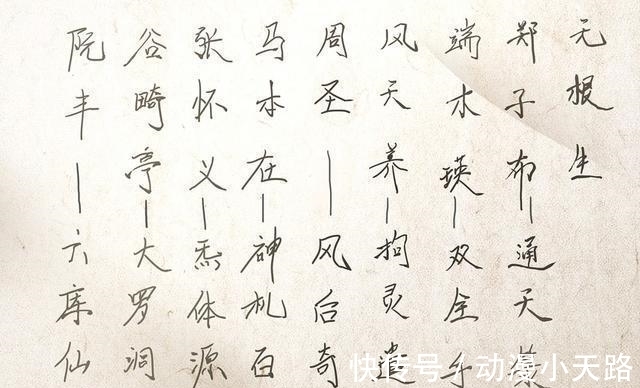 无根生
郑子布—通天
端木瑛—双全手
风天养—拘灵遣
周圣—风后奇
马本在—神机百
张怀义—炁体源
谷畸亭—大罗洞
阮丰—六库仙
快传号/动漫小天路